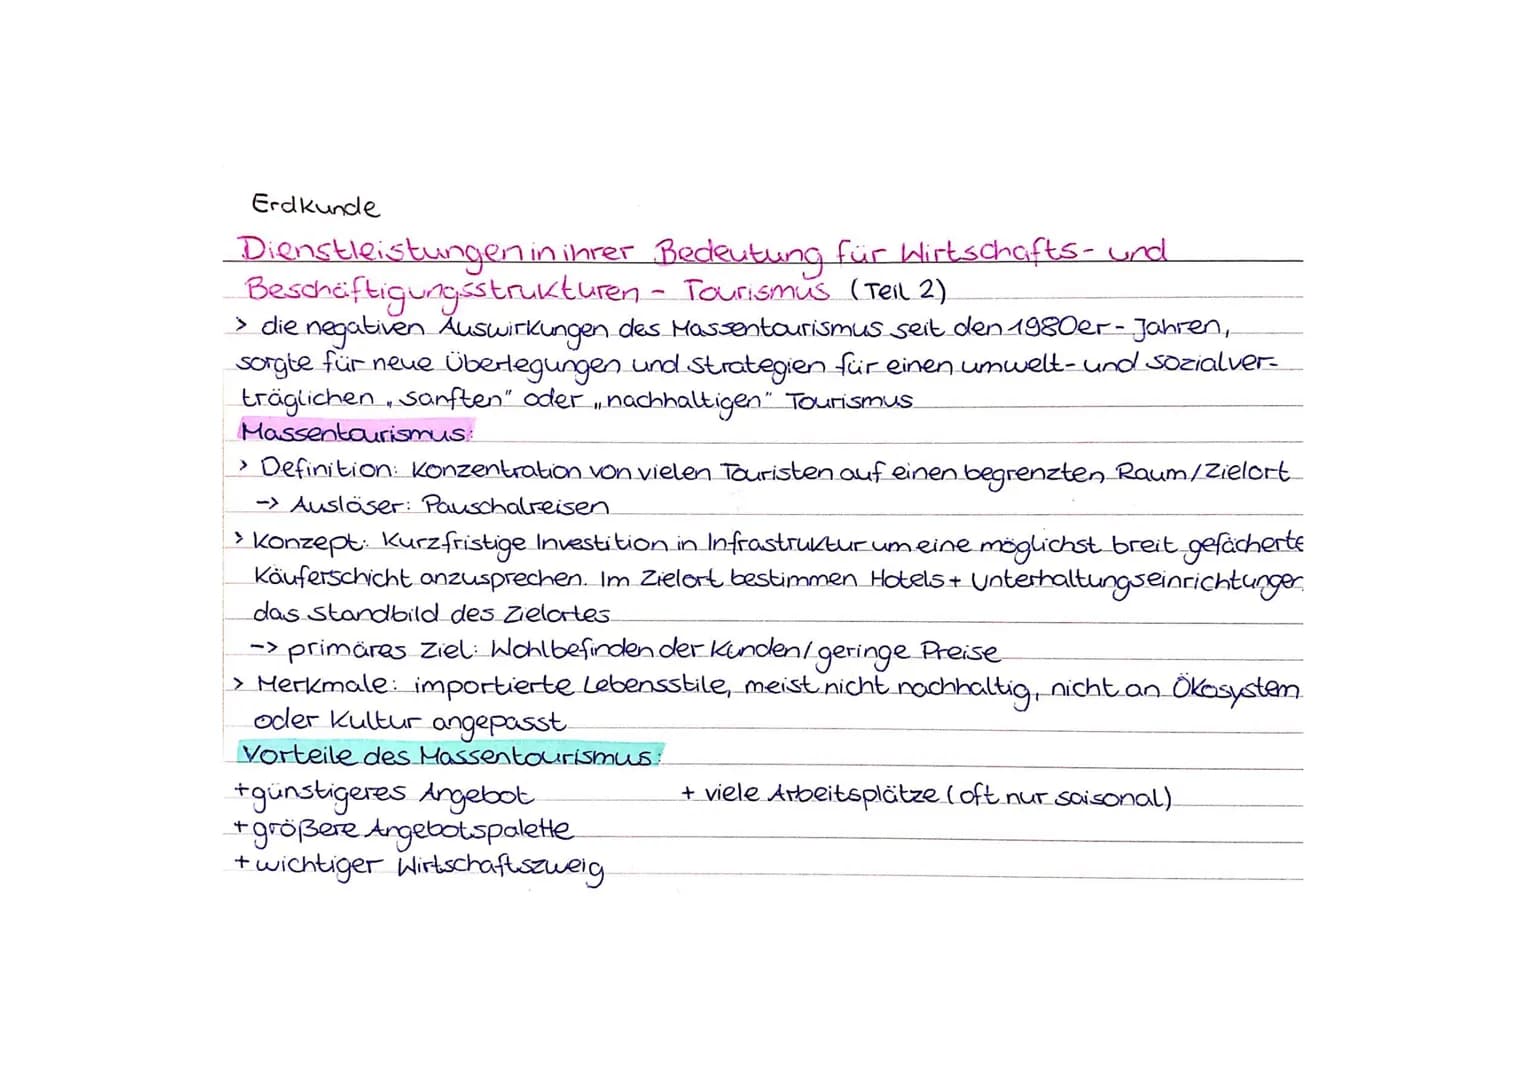 Erdkunde
Dienstleistungen in ihrer Bedeutung für Wirtschafts- und
Beschäftigungsstrukturen - Tourismus (Teil 2)
> die negativen Auswirkungen des Massentourismus seit den 1980er-Jahren,
sorgte für neue Überlegungen und Strategien für einen umwelt- und sozialver-
träglichen „sanften" oder „nachhaltigen" Tourismus
Massentourismus:
> Definition: Konzentration von vielen Touristen auf einen begrenzten Raum/Zielort
-> Auslöser: Pauschalreisen
> Konzept: Kurzfristige Investition in Infrastruktur um eine möglichst breit gefächerte
Käuferschicht anzusprechen. Im Zielort bestimmen Hotels + Unterhaltungseinrichtungen
das Standbild des Zielortes
-> primäres Ziel: Wohlbefinden der Kunden/geringe Preise
> Merkmale: importierte Lebensstile, meist nicht nachhaltig, nicht an Ökosystem
oder Kultur angepasst
Vorteile des Massentourismus:
+ günstigeres Angebot + viele Arbeitsplätze (oft nur saisonal)
+ größere Angebotspalette
+ wichtiger Wirtschaftszweig